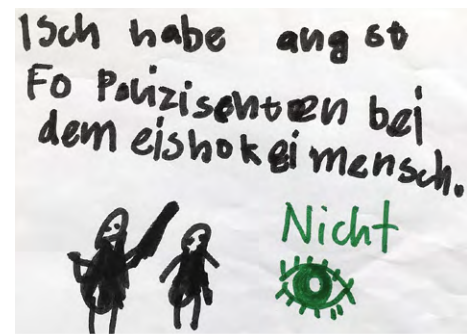 ISch habe angst
Fo Polizisenten bei
dem eishokei mensch.
Nicht